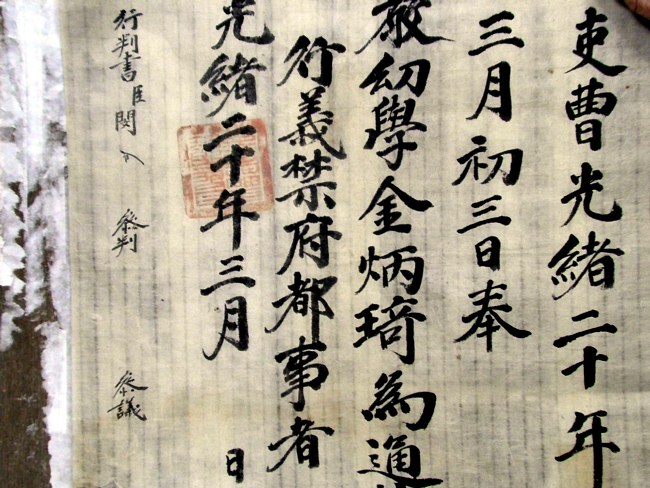 吏曹光緒二十年
三月初三日奉
敎幼學金炳琦為通
行義禁府都事者
光緒二十年三月 日
行判書臣閔
叅判
叅議